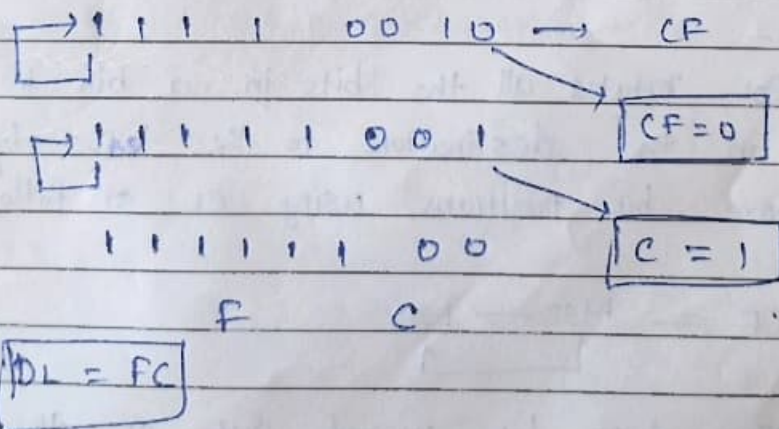 1 1 1 1 0 0 1 0 → CF
CF = 0
1 1 1 1 1 0 0 1
C = 1
1 1 1 1 1 1 0 0
F C
DL = FC